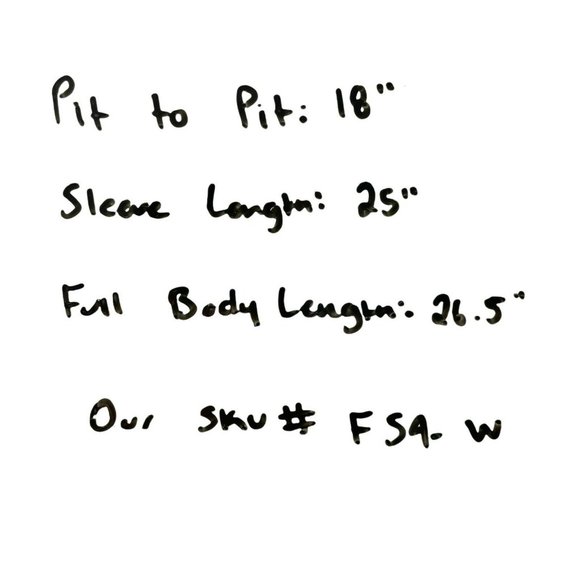 Pit to Pit: 18"
Sleeve Length: 25"
Full Body Length: 26.5"
Our SKU# FS9- W